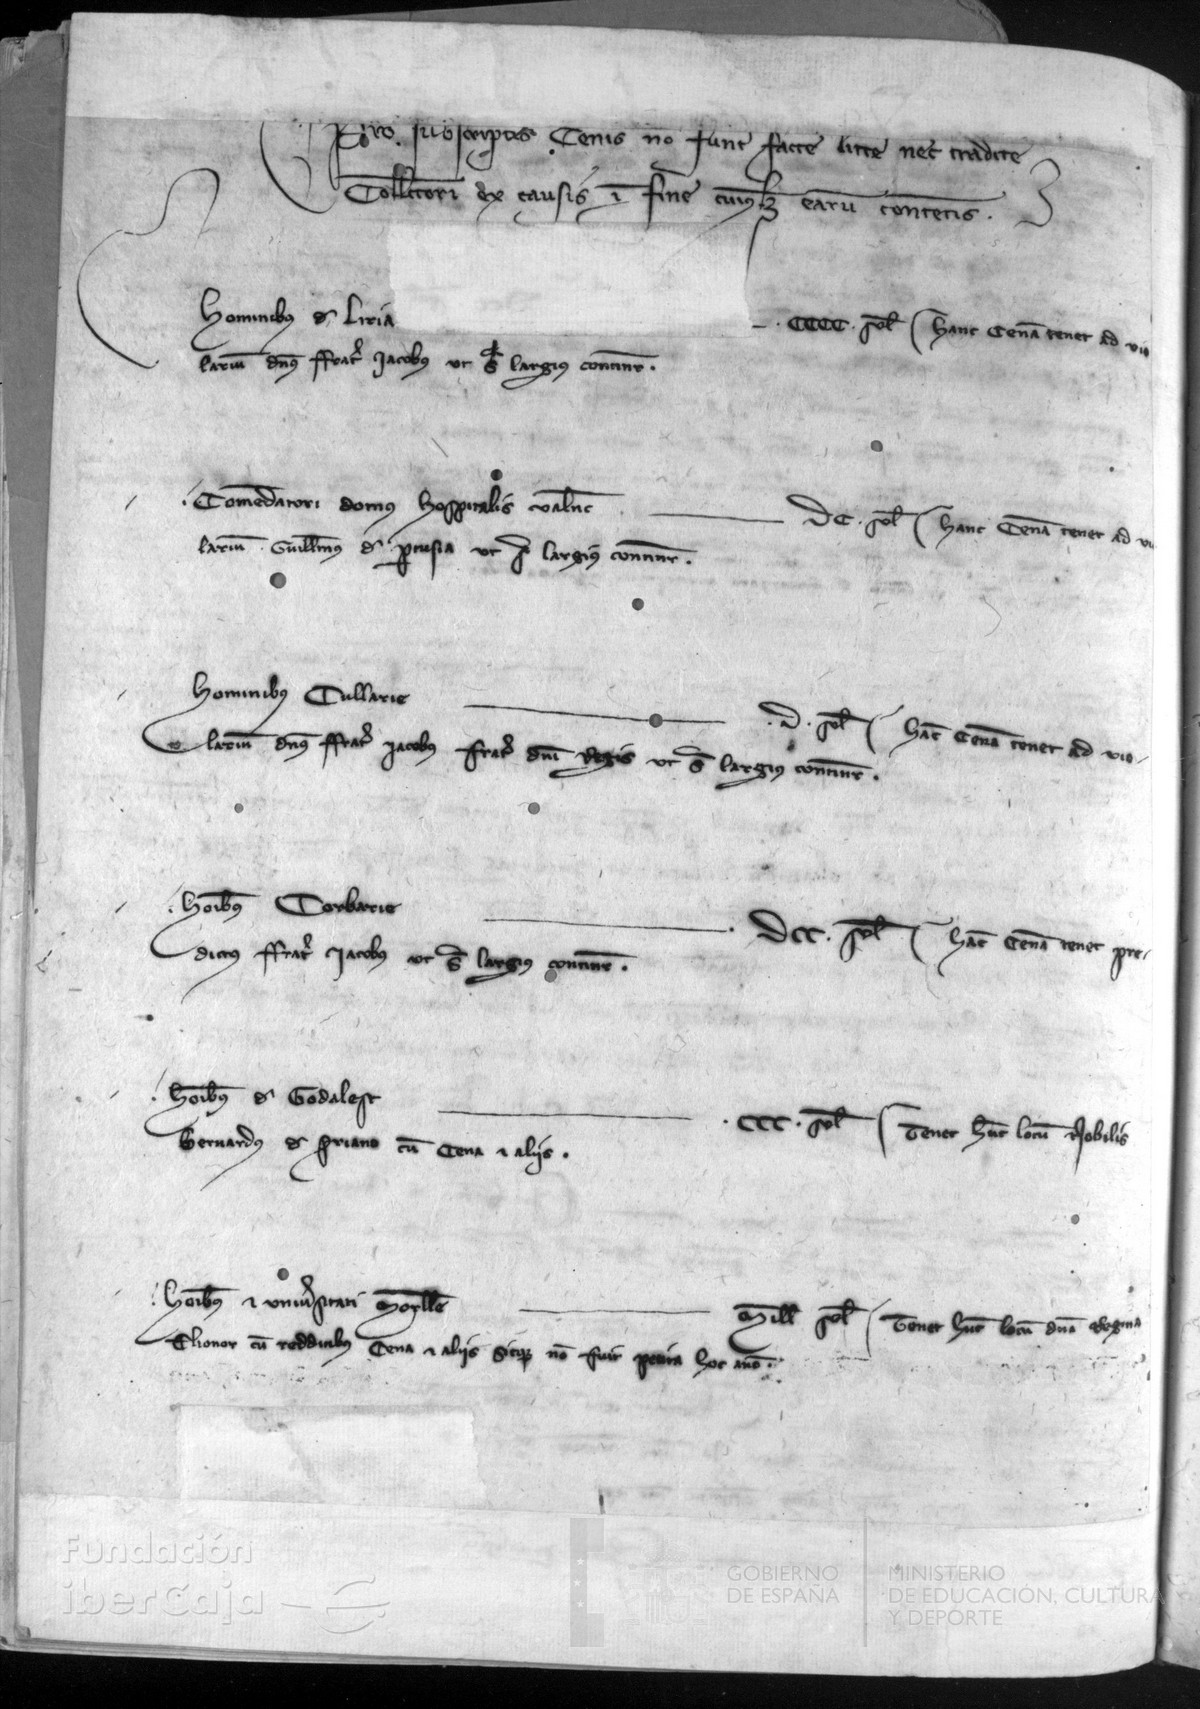 Pro subscriptis Cenis nō sunt facte littē nec tradite
Collectori ex causis ī fine cuiuslꝫ earū contentis.
Hominibus d Liria
.CCCC. sol hanc Cenā tenet ad vio
lariū dn̄s ffrat̄ Jacobus ut s̄ largius continet̄.
.Comēdatori domus hospitalis valn̄c
DC. sol hanc Cenā tenet ad vi
lariū Guill̄ms d ut s̄ largius continet̄.
Hominibus Cullarie
.D. sol hāc Cenā tenet ad vio-
lariū dn̄s ffrat̄ Jacobus frat̄ dn̄i Regis ut s̄ largius continet̄.
.hōibus Corbarie
.DCC. sol hāc Cenā tenet pre-
dictus ffrat̄ Jacobus ut s̄ largius continet̄.
.hōibus d Godalest
.CCC. sol Tenet hūc locū Nobilis
Bernardus d Sriano cū Cena ⁊ aliis.
.hōibus ⁊ univ̄sitati Morelle
Mill sol Tenet hūc locū dn̄a Regina
Elionor cū redditibus Cena ⁊ aliis sicqꝫ nō fuit petita hoc anō.
Fundación
iberCaja
GOBIERNO
DE ESPAÑA
MINISTERIO
DE EDUCACIÓN, CULTURA
Y DEPORTE